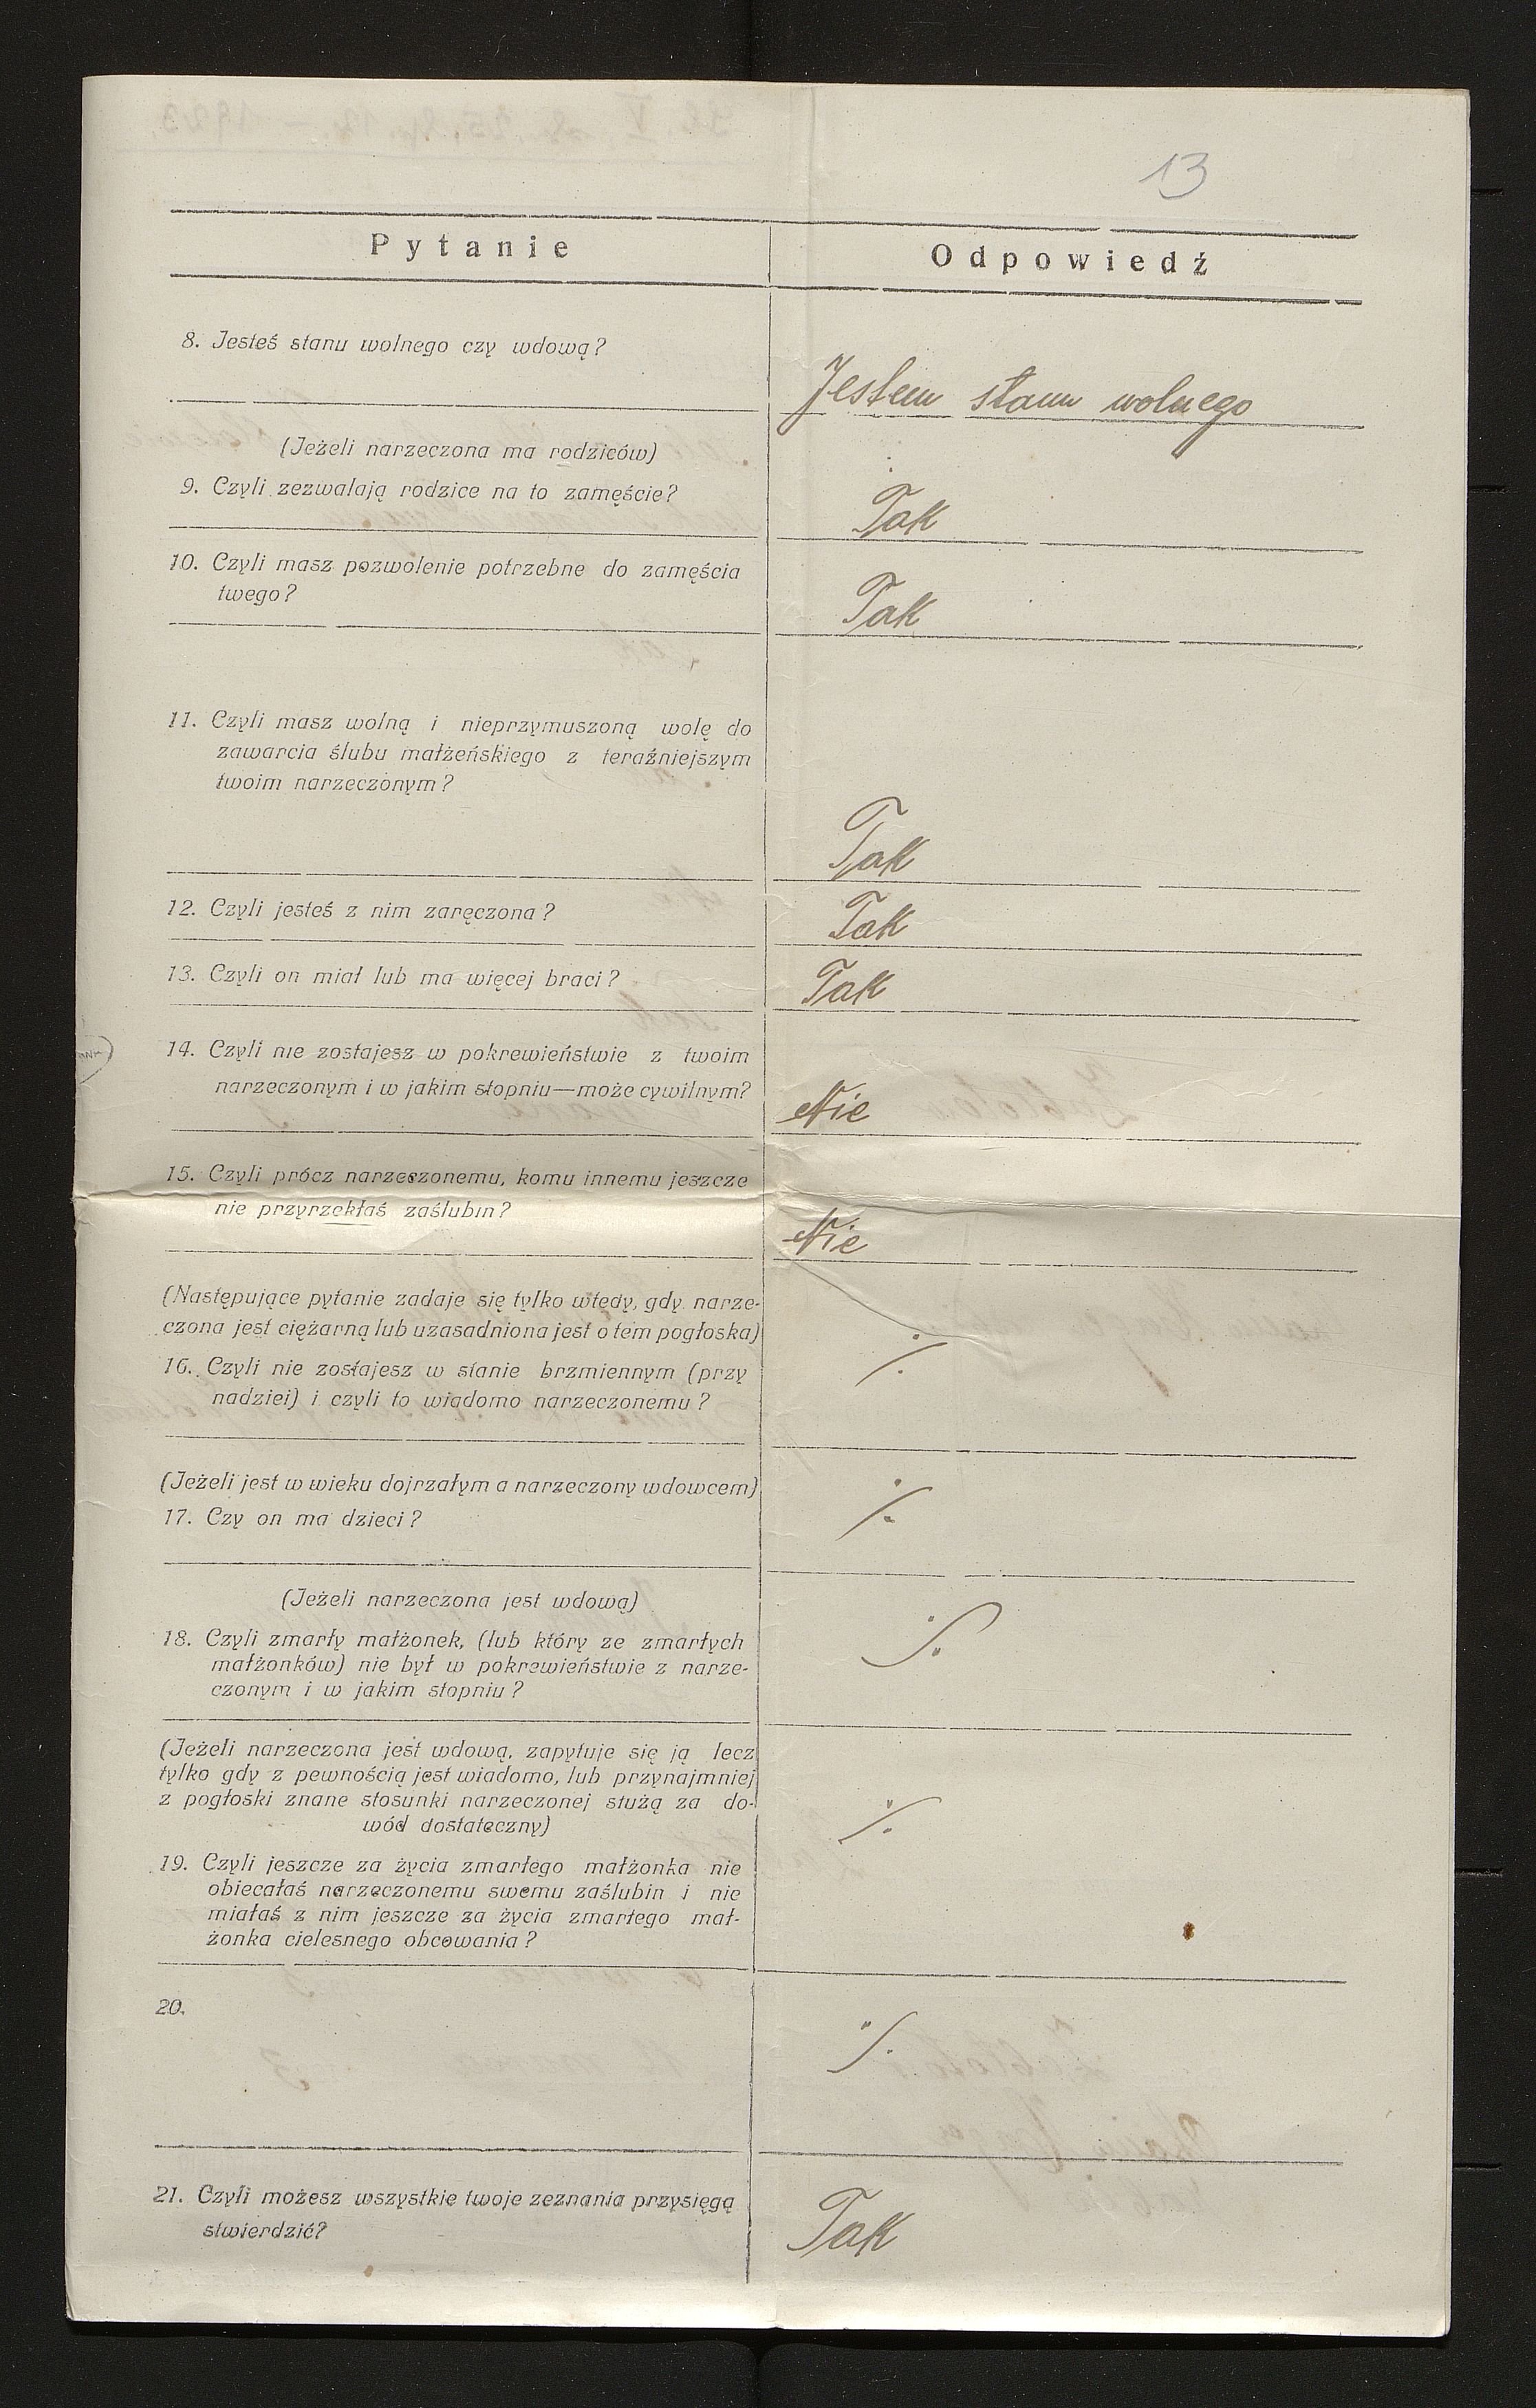 13
Pytanie
Odpowiedź
8. Jesteś stanu wolnego czy wdową?
Jestem stanu wolnego
(Jeżeli narzeczona ma rodziców)
9. Czyli zezwalają rodzice na to zamęście?
Tak
10. Czyli masz pozwolenie potrzebne do zamęścia
twego?
Tak
11. Czyli masz wolną i nieprzymuszoną wolę do
zawarcia ślubu małżeńskiego z teraźniejszym
twoim narzeczonym?
Tak
12. Czyli jesteś z nim zaręczona?
Tak
13. Czyli on miał lub ma więcej braci?
Tak
14. Czyli nie zostajesz w pokrewieństwie z twoim
narzeczonym i w jakim stopniu—może cywilnym?
Nie
15. Czyli prócz narzeczonemu, komu innemu jeszcze
nie przyrzekłaś zaślubin?
Nie
(Następujące pytanie zadaje się tylko wtedy, gdy narze-
czona jest ciężarną lub uzasadniona jest o tem pogłoska)
16. Czyli nie zostajesz w stanie brzmiennym (przy
nadziei) i czyli to wiadomo narzeczonemu?
⁒
(Jeżeli jest w wieku dojrzałym a narzeczony wdowcem)
17. Czy on ma dzieci?
⁒
(Jeżeli narzeczona jest wdową)
18. Czyli zmarły małżonek, (lub który ze zmarłych
małżonków) nie był w pokrewieństwie z narze-
czonym i w jakim stopniu?
⁒
(Jeżeli narzeczona jest wdową, zapytuje się ją lecz
tylko gdy z pewnością jest wiadomo, lub przynajmniej
z pogłoski znane stosunki narzeczonej służą za do-
wód dostateczny)
19. Czyli jeszcze za życia zmarłego małżonka nie
obiecałaś narzeczonemu swemu zaślubin i nie
miałaś z nim jeszcze za życia zmarłego mał-
żonka cielesnego obcowania?
⁒
20.
⁒
21. Czyli możesz wszystkie twoje zeznania przysięgą
stwierdzić?
Tak